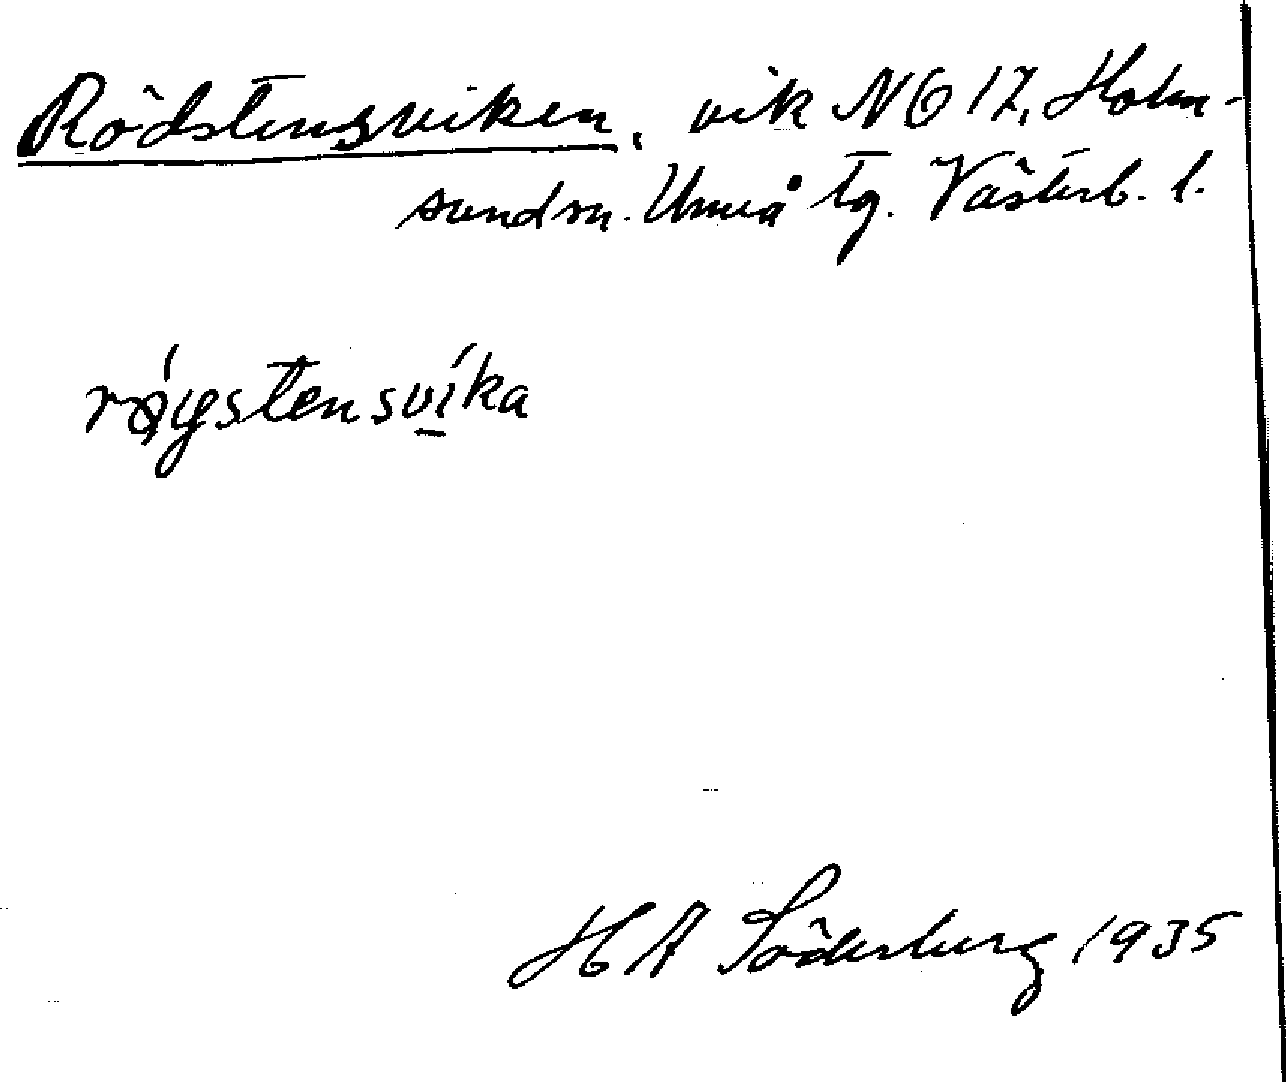 Rödstensviken, vik NO 17, Holm-
sundsn. Umeå tg. Västerb. l.
røystensvika
H A Söderberg 1935